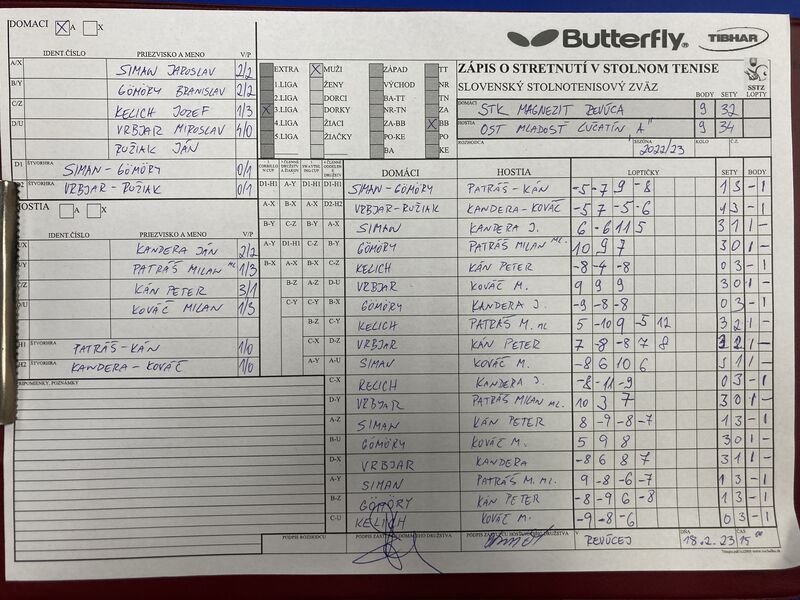 DOMACI X A X
IDENT.ČÍSLO PRIEZVISKO A MENO V/P
A/X SIMAN JAROSLAV 2/2
B/Y GÖMÖRY BRANISLAV 2/2
C/Z KELICH JOZEF 1/3
D/U VRBJAR MIROSLAV 4/0
RUŽIAK JÁN
D1 ŠTVORHRA SIMAN-GÖMÖRY 0/1
VRBJAR-RUŽIAK 0/1
HOSTIA A X
IDENT.ČÍSLO PRIEZVISKO A MENO V/P
KANDERA JÁN 2/2
PATRÁŠ MILAN ML 1/3
KÁN PETER 3/1
KOVÁČ MILAN 1/3
ŠTVORHRA PATRÁŠ-KÁN 1/0
H2 ŠTVORHRA KANDERA-KOVÁČ 1/0
PRIPOMIENKY, POZNÁMKY
Butterfly® TIBHAR
EXTRA X MUŽI ZÁPAD TT
1.LIGA ŽENY VÝCHOD NR
2.LIGA DORCI BA-TT TN
X 3.LIGA DORKY NR-TN ZA
4.LIGA ŽIACI ZA-BB X BB
5.LIGA ŽIAČKY PO-KE PO
BA KE
ZÁPIS O STRETNUTÍ V STOLNOM TENISE
SLOVENSKÝ STOLNOTENISOVÝ ZVÄZ
SSTZ
BODY SETY LOPTY
DOMÁCI STK MAGNEZIT REVÚCA 9 32
HOSTIA OST MLADOSŤ LUČATÍN "A" 9 34
ROZHODCA SEZÓNA 2022/23 KOLO Č.Z.
DOMÁCI HOSTIA LOPTIČKY SETY BODY
D1-H1 A-Y D1-H1 D1-H1 SIMAN-GÖMÖRY PATRÁŠ-KÁN -5 -7 9 -8 1 3 - 1
A-X B-X A-X D2-H2 VRBJAR-RUŽIAK KANDERA-KOVÁČ -5 7 -5 -6 1 3 - 1
B-Y C-Y B-Y A-X SIMAN KANDERA J. 6 -6 11 5 3 1 1 -
A-Y D1-H1 C-Z B-Y GÖMÖRY PATRÁŠ MILAN ML. 10 9 7 3 0 1 -
B-X A-X B-X C-Z KELICH KÁN PETER -8 -4 -8 0 3 - 1
D-U VRBJAR KOVÁČ M. 9 9 9 3 0 1 -
C-Y C-Y B-X GÖMÖRY KANDERA J. -9 -8 -8 0 3 - 1
B-Z C-Y KELICH PATRÁŠ M. ML 5 -10 9 -5 12 3 2 1 -
C-X D-Z VRBJAR KÁN PETER 7 -8 -8 7 8 3 2 1 -
A-Y A-U SIMAN KOVÁČ M. -8 6 10 6 3 1 1 -
C-X KELICH KANDERA J. -8 -11 -9 0 3 - 1
D-Y VRBJAR PATRÁŠ MILAN ML. 10 3 7 3 0 1 -
A-Z SIMAN KÁN PETER 8 -9 -8 -7 1 3 - 1
B-U GÖMÖRY KOVÁČ M. 5 9 8 3 0 1 -
D-X VRBJAR KANDERA -8 6 8 7 3 1 1 -
A-Y SIMAN PATRÁŠ M. ML. 9 -8 -6 -7 1 3 - 1
B-Z GÖMÖRY KÁN PETER -8 -9 6 -8 1 3 - 1
C-U KELICH KOVÁČ M. -9 -8 -6 0 3 - 1
PODPIS ROZHODCU V REVÚCEJ DŇA 18.2. 23 ČAS 15 00